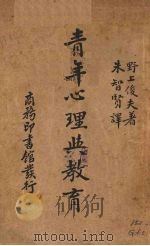 野上俊夫著
朱智賢譯
青年心理與教育
商務印書館發行